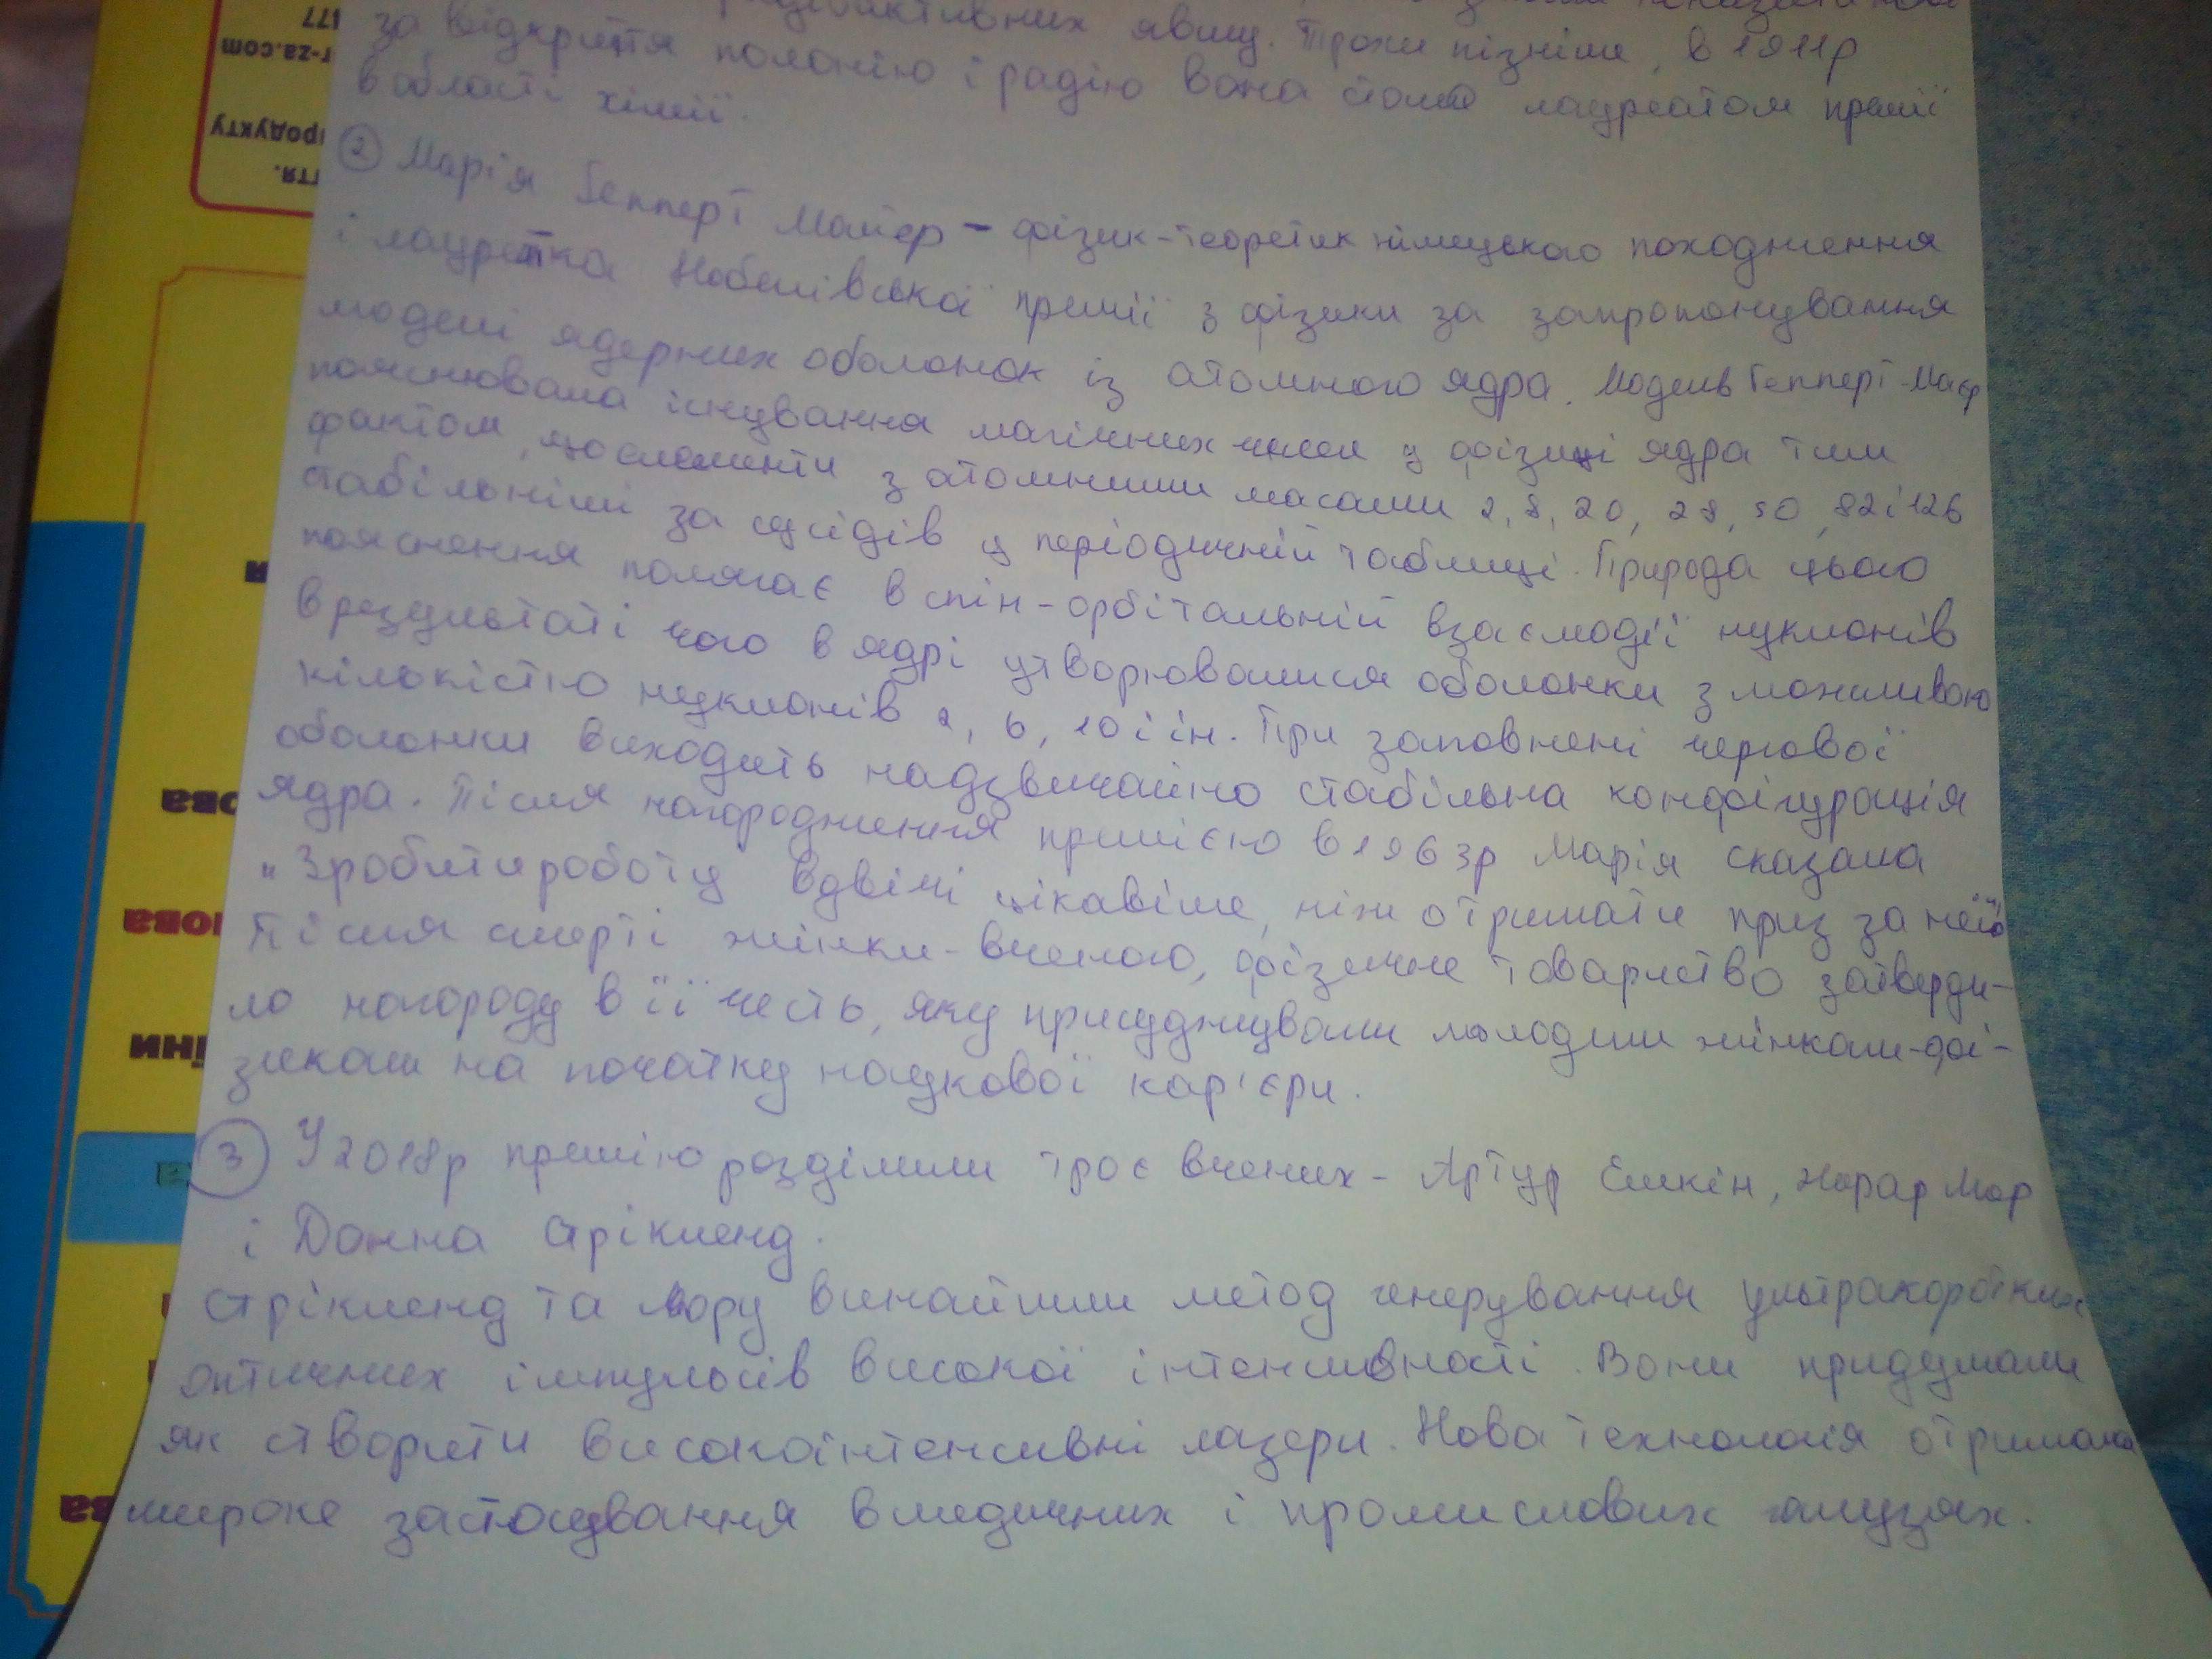 радіоактивних явищ. Трохи пізніше, в 1911р
за відкриття полонію і радію вона стала лауреатом премії
в області хімії.
② Марія Гепперт Майєр - фізик-теоретик німецького походження
і лауретка Нобелівської премії з фізики за запропонування
моделі ядерних оболонок із атомного ядра. Модель Гепперт-Маєр
пояснювала існування магічних чисел у фізиці ядра тим
фактом, що елементи з атомними масами 2, 8, 20, 28, 50, 82 і 126
стабільніші за сусідів у періодичній таблиці. Природа цього
пояснення полягає в спін-орбітальній взаємодії нуклонів
в результаті чого в ядрі утворювалися оболонки з можливою
кількістю нуклонів 2, 6, 10 і ін. При заповнені чергової
оболонки виходить надзвичайно стабільна конфігурація
ядра. Після нагородження премією в 1963р Марія сказала
"Зробити роботу вдвічі цікавіше, ніж отримати приз за неї"
Після смерті жінки-вченого, фізичне товариство затверди-
ло нагороду в її честь, яку присуджували молодим жінкам-фі-
зикам на початку наукової кар'єри.
③ У 2018р премію розділили троє вчених - Артур Ешкін, Жерар Мор
і Донна Стрікленд.
Стрікленд та Мору винайшли метод генерування ультракоротких
оптичних імпульсів високої інтенсивності. Вони придумали
як створити високоінтенсивні лазери. Нова технологія отримала
широке застосування в медичних і промислових галузях.
177
r-za.com
продукту
ття.
ова
нова
іни
ва